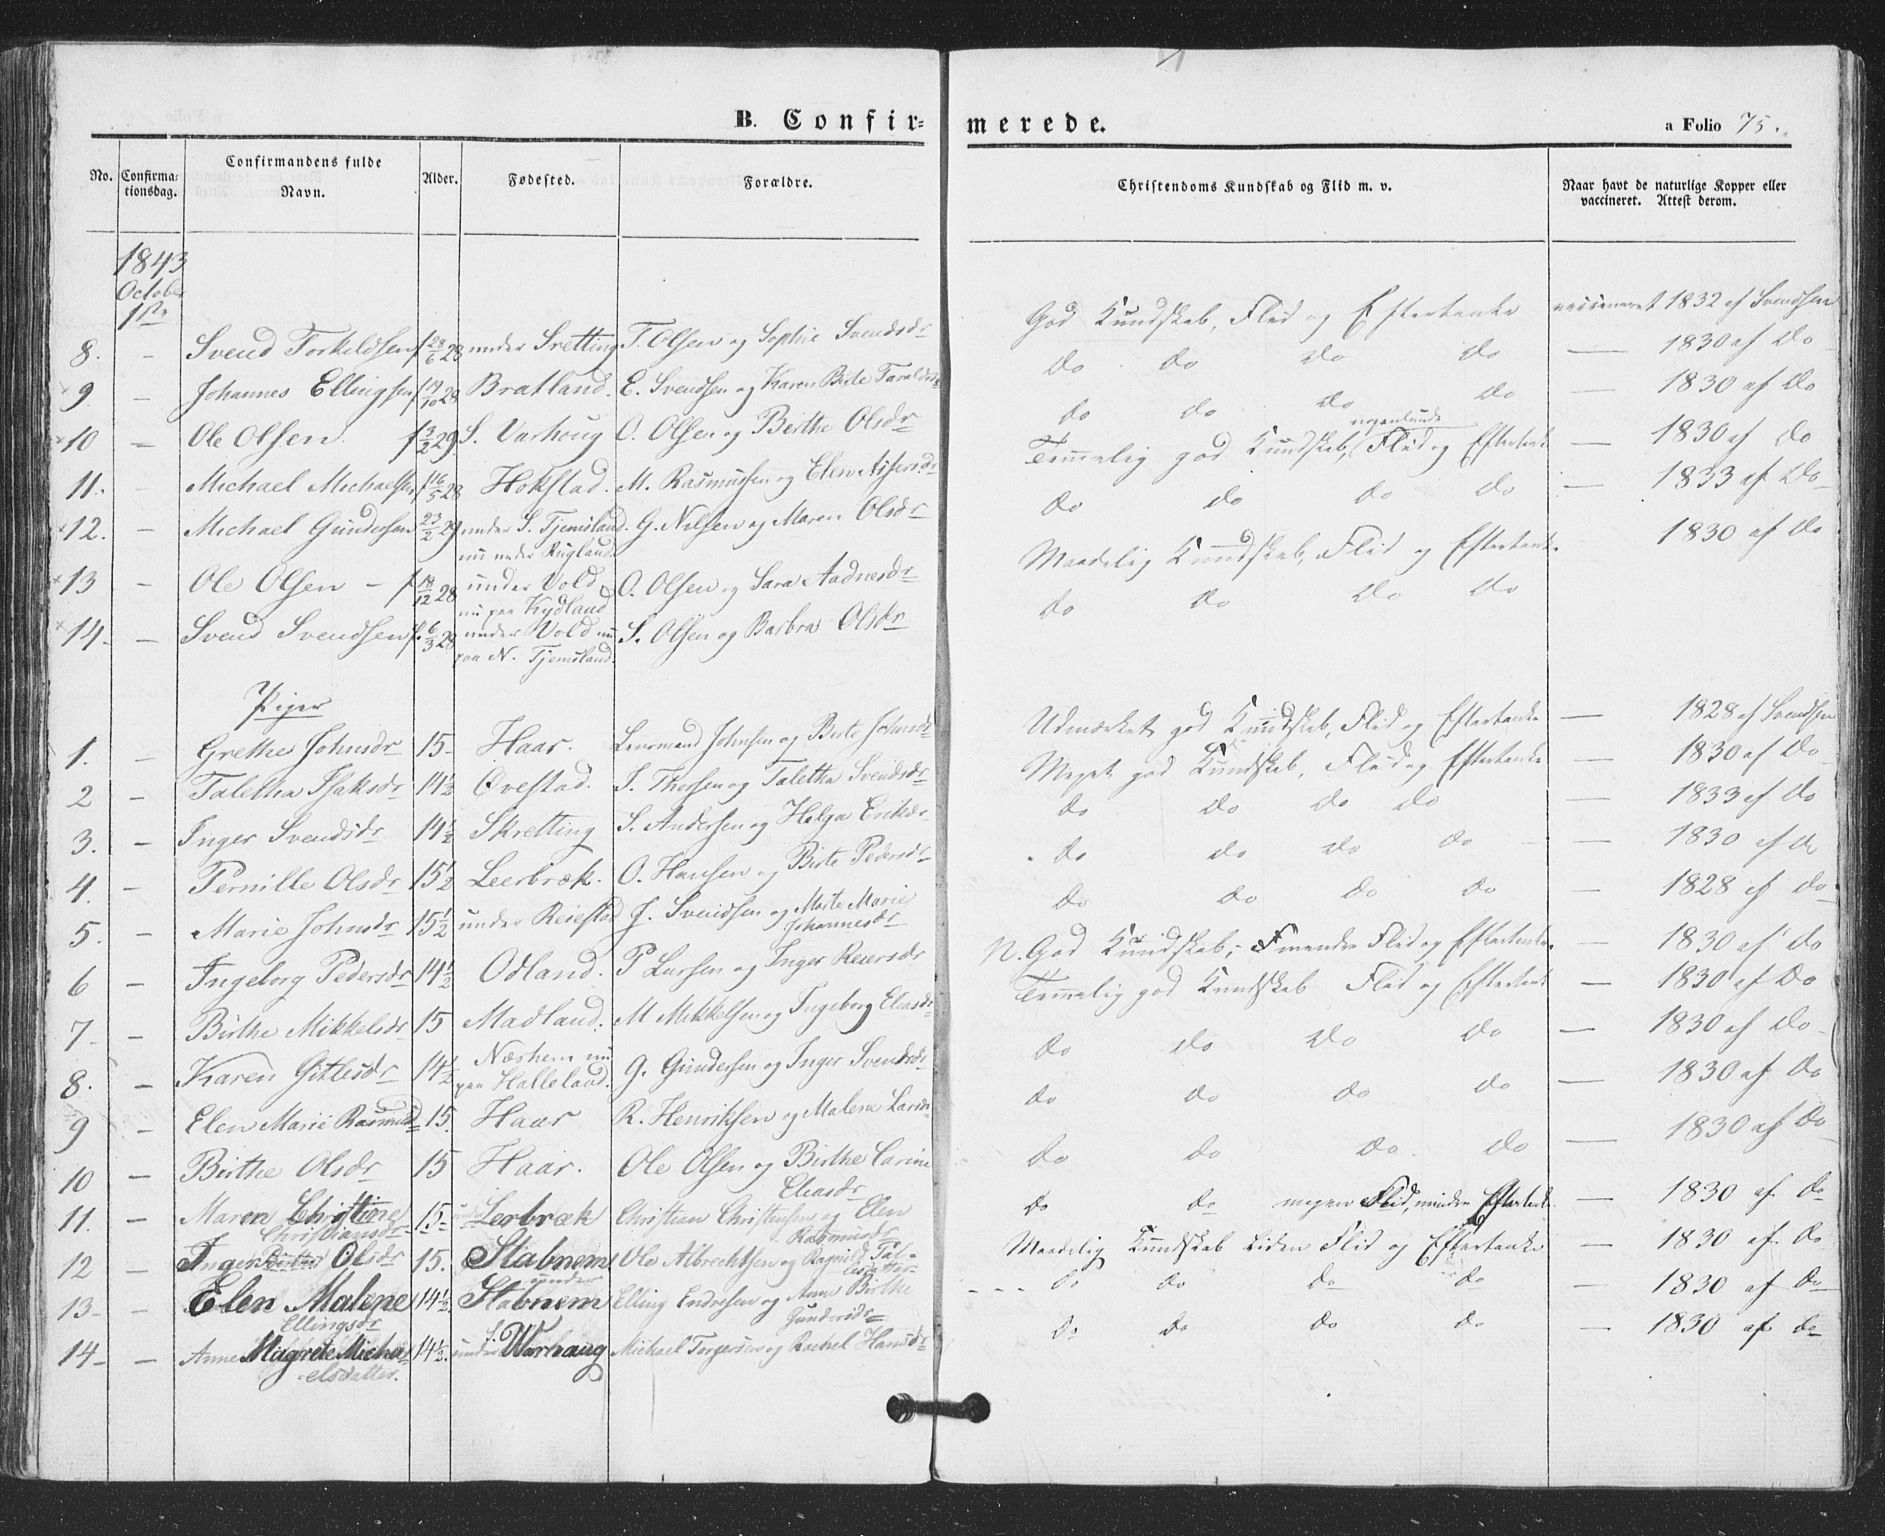 B. Confir=
merede.
a Folio 75.
No.
Confirma=
tionsdag.
Confirmandens fulde
Navn.
Alder.
Fødested.
Forældre.
Christendoms Kundskab og Flid m. v.
Naar havt de naturlige Kopper eller
vaccineret. Attest derom.
1843
October
1ste
8. — Svend Torkeldsen f 28/6 28 under Sretting T. Olsen og Sophie Svendsdr God Kundskab, Flid og Eftertanke vaccineret 1832 af Svendsen
9 — Johannes Ellingsen f 19/10 28 Bratland. E. Svendsen og Karen Birte Taraldsdr do do do do — 1830 af do
10 — Ole Olsen f 3/2 29 S. Varhoug O. Olsen og Birthe Olsdr do do do do — 1830 af do
11. — Michael Michaelsen f 16/5 28 Hokstad. M. Rasmussen og Elen Assersdr Temmelig god Kundskab, nogenlunde Flid og Eftertanke — 1830 af do
12. — Michael Gundersen 23/2 29 under S. Tjemsland. G. Nilsen og Maren Olsdr do do do do — 1833 af do
nu under Rugland
13 — Ole Olsen — f 18/12 28 under Vold O. Olsen og Sara Aadnesdr Maadelig Kundskab, Flid og Eftertanke 1830 af do
nu paa Kydland
14 — Svend Svendsen f. 6/3 28 under Vold nu S. Olsen og Barbra Olsdr do do do do
paa N. Tjemsland.
Piger
1. — Grethe Johnsdr 15 Haar. Lensmand Johnsen og Birte Johnsdr Udmærket god Kundskab, Flid og Eftertanke — 1828 af Svendsen
2 — Taletha Isaksdr 14½ Ovestad. I. Thorsen og Taletha Svendsdr Meget god Kundskab, Flid og Eftertanke — 1830 af do
3. — Inger Svendsdr 14½ Skretting S. Andersen og Helga Eriksdr do do do do — 1833 af do
4. — Pernille Olsdr 15½ Leerbræk. O. Hansen og Birte Pedersdr do do do do — 1830 af do
5. — Marie Johnsdr 15½ under Reiestad J. Svendsen og Marte Marie do do do do — 1828 af do
Johannesdr
6 — Ingeborg Pedersdr 14½ Odland. P Larsen og Inger Reiersdr N. God Kundskab; mindre Flid og Eftertanke — 1830 af do
7 — Birthe Mikkelsdr 15 Madland. M Mikkelsen og Ingeborg Eliasdr Temmelig god Kundskab Flid og Eftertanke — 1830 af do
8. — Karen Gitlesdr 14½ Næshem nu G. Gundersen og Inger Svendsdr do do do do — 1830 af do
paa Halleland.
9 — Elen Marie Rasmusd 15. Haar R. Henriksen og Malene Larsdr do do do do — 1830 af do
10 — Birthe Olsdr 15 Haar. Ole Olsen og Birthe Carine do do do do — 1830 af do
Eliasdr
11. — Maren Christine 15 under Lerbræk Christian Christensen og Elen do do megen Flid, mindre Eftertanke — 1830 af do
Christiansdr Rasmusdr
12 — Inger Birthe Olsdr 15. Stabnem Ole Albrechtsen og Ragnild Tal- Maadelig Kundskab Liden Flid og Eftertanke — 1830 af do
lesdatter
13 — Elen Malene 14½ under Stabnem Elling Endresen og Anne Birthe do do do do — 1830 af do
Ellingsdr Gundersdr
14 — Anne Magrete Micha 14½. under S. Warhaug Michael Torgersen og Rachel Hansdr do do do do — 1830 af do
elsdatter.